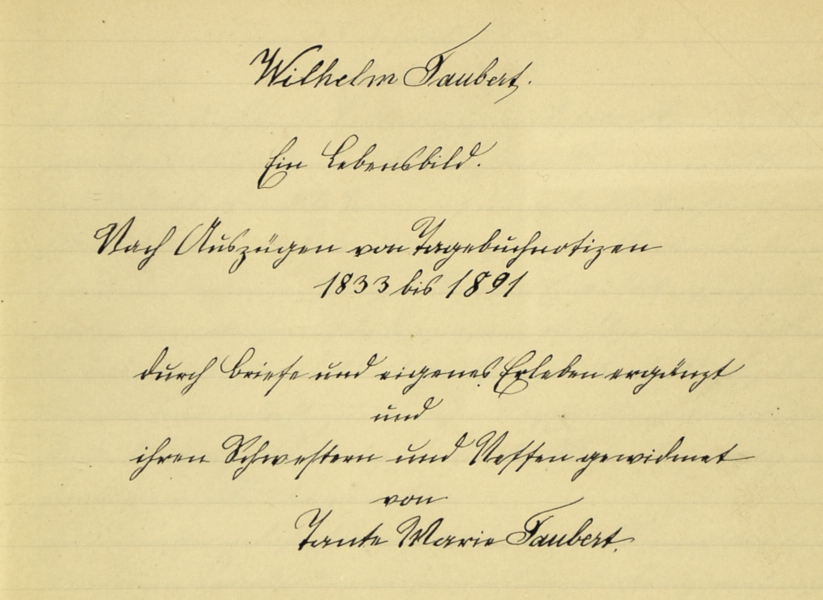 Wilhelm Taubert.
Ein Lebensbild.
Nach Auszügen von Tagebuchnotizen
1833 bis 1891
durch Briefe und eigenes Erleben ergänzt
und
ihren Schwestern und Neffen gewidmet
von
Tante Marie Taubert.